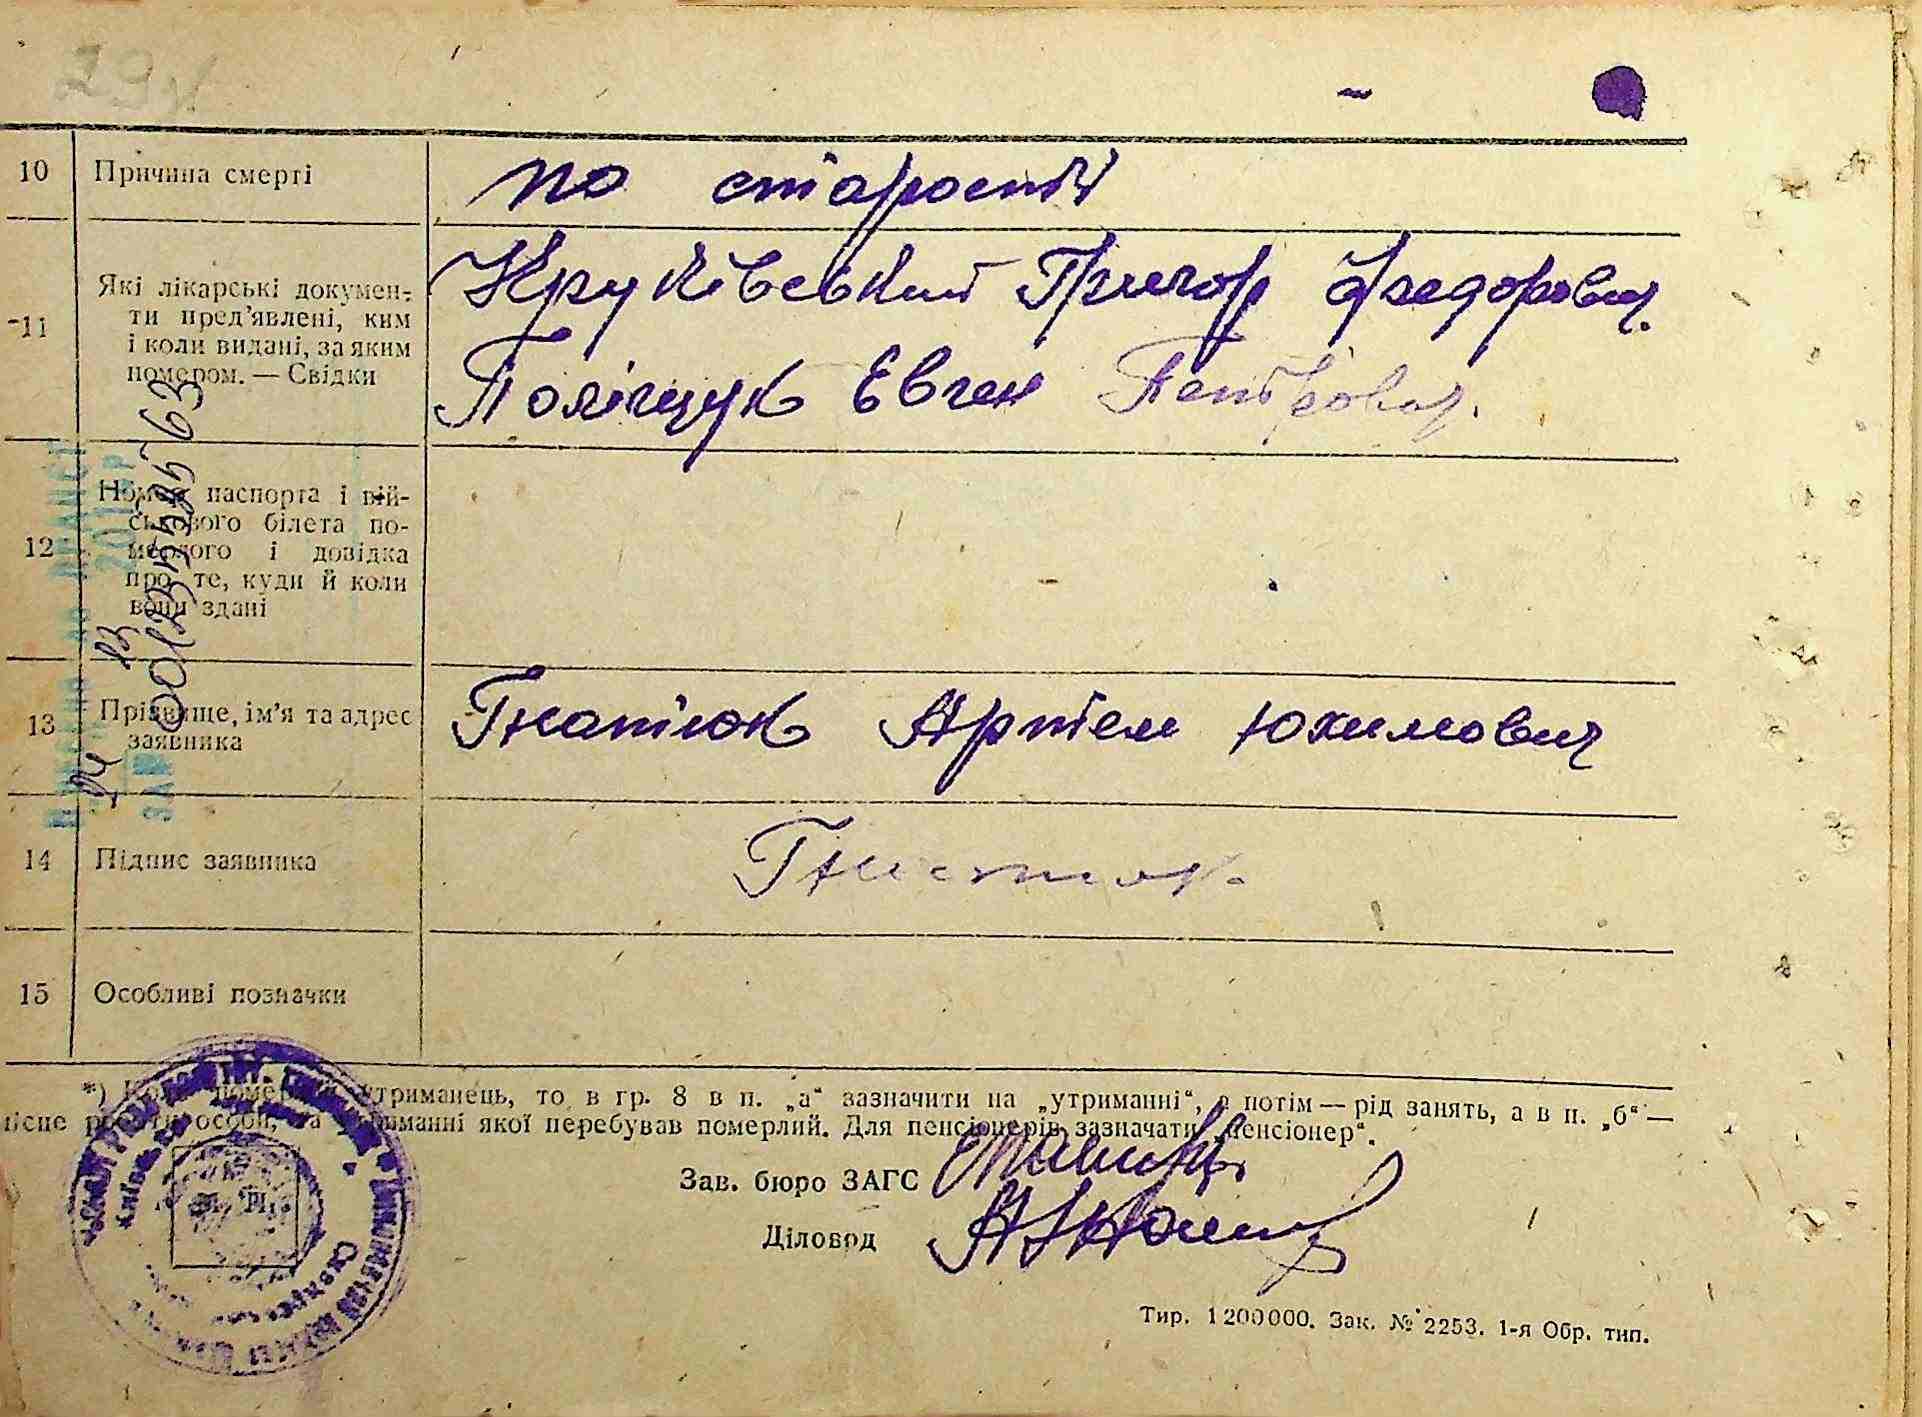 10 Причина смерті по старості
11 Які лікарські докумен-
ти пред'явлені, ким
і коли видані, за яким
номером. — Свідки
Круківський Григор Федорович.
Поліщук Евген Петрович.
12 Номер паспорта і вій-
ськового білета по-
мерлого і довідка
про те, куди й коли
вони здані
13 Прізвище, ім'я та адрес
заявника
Гнатюк Артем Юхимович
14 Підпис заявника Гнатюк.
15 Особливі позначки
*) Коли померлий утриманець, то в гр. 8 в п. „а“ зазначити на „утриманні“, а потім — рід занять, а в п. „б“ —
місце роботи особи, на утриманні якої перебував померлий. Для пенсіонерів зазначати „пенсіонер“.
Зав. бюро ЗАГС
Діловод
Тир. 1200000. Зак. № 2253. 1-я Обр. тип.